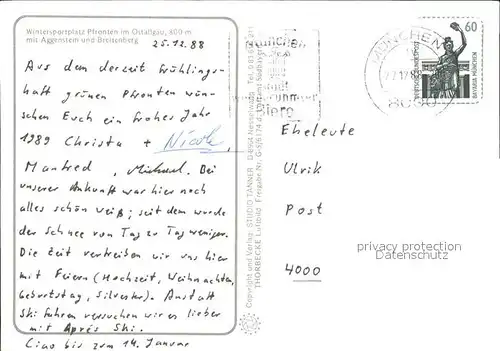 Wintersportplatz Pfronten im Ostallgäu, 800 m
mit Aggenstein und Breitenberg
25.12.88
Aus dem derzeit frühlings-
haft grünen Pfronten wün-
schen Euch ein frohes Jahr
1989 Christa + Nicole
Manfred, Michael. Bei
unserer Ankunft war hier noch
alles schön weiß; seit dem wurde
der Schnee von Tag zu Tag weniger.
Die Zeit vertreiben wir uns hier
mit Feiern (Hochzeit, Weihnachten,
Geburtstag, Silvester). Anstatt
Ski fahren versuchen wir es lieber
mit Après Ski.
Ciao bis zum 14. Januar
Copyright und Verlag: STUDIO TANNER
THORBECKE Luftbild
München
Stadt
Biere
MÜNCHEN
8000
60
DEUTSCHE BUNDESPOST
BAVARIA MÜNCHEN
Eheleute
Ulrik
Post
4000
privacy protection
Datenschutz